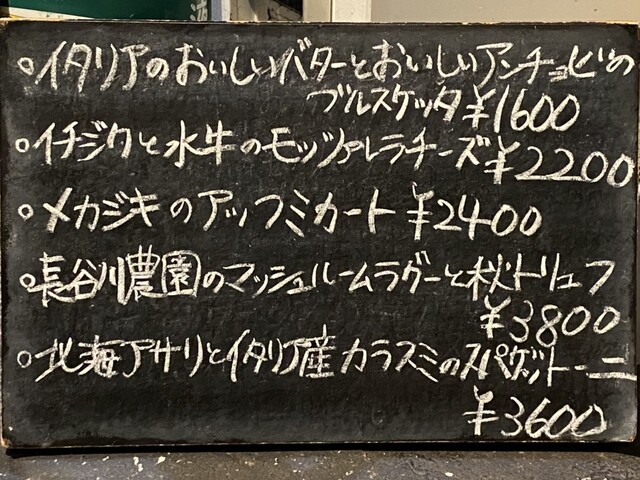 ○イタリアのおいしいバターとおいしいアンチョビの
ブルスケッタ¥1600
○イチジクと水牛のモッツァレラチーズ¥2200
○メカジキのアッフミカート¥2400
○長谷川農園のマッシュルームラグーと秋トリュフ
¥3800
○北海アサリとイタリア産カラスミのスパゲットーニ
¥3600